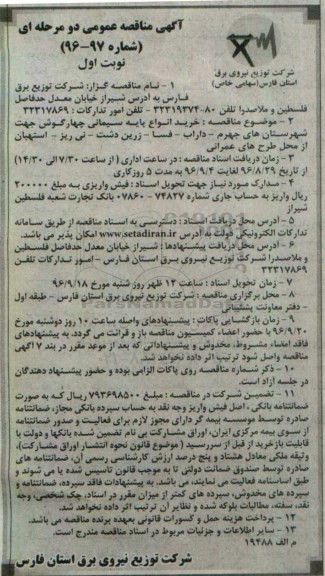 آگهی مناقصه عمومی دو مرحله ای
(شماره ۹۷-۹۶)
نوبت اول
شرکت توزیع نیروی برق
استان فارس(سهامی خاص)
۱ - نام مناقصه گزار: شرکت توزیع برق
فارس به ادرس شیراز خیابان معدل حدفاصل
فلسطین و ملاصدرا تلفن ۸۰-۳۲۳۱۹۳۷۴ - تلفن امور تدارکات : ۳۲۳۱۷۸۶۹
۲ - موضوع مناقصه : خرید انواع پایه سیمانی چهارگوش جهت
شهرستان های جهرم - داراب - فسا - زرین دشت - نی ریز - استهبان
از محل طرح های عمرانی
۳ - زمان دریافت اسناد مناقصه : در ساعت اداری ( از ساعت ۷/۳۰ الی ۱۴/۳۰)
از تاریخ ۹۶/۸/۲۹ لغایت ۹۶/۹/۴ به مدت ۵ روزکاری
۴ - مدارک مورد نیاز جهت تحویل اسناد : فیش واریزی به مبلغ ۲۰۰۰۰۰
ریال واریز به حساب جاری شماره ۷۴۸۲۷ - ۰۷۸۶۰ بانک تجارت شعبه فلسطین
شیراز
۵ - ادرس محل دریافت اسناد : دسترسی به اسناد مناقصه از طریق سامانه
تدارکات الکترونیکی دولت به آدرس www.setadiran.ir امکان پذیر می باشد.
۶ - ادرس محل دریافت پیشنهادها : شیراز خیابان معدل حدفاصل فلسطین
و ملاصدرا شرکت توزیع نیروی برق استان فارس - امور تدارکات تلفن
۳۲۳۱۷۸۶۹
۷ - زمان تحویل اسناد : ساعت ۱۲ ظهر روز شنبه مورخ ۹۶/۹/۱۸
۸ - محل برگزاری مناقصه : شرکت توزیع نیروی برق استان فارس - طبقه اول
- دفتر معاونت پشتیبانی
۹ - زمان بازگشایی پاکات : پیشنهادهای واصله ساعت ۱۰ روز دوشنبه مورخ
۹۶/۹/۲۰ با حضور اعضاء کمیسیون مناقصه باز و قرائت می گردد. به پیشنهادهای
فاقد امضاء مشروط، مخدوش و پیشنهاداتی که بعد از موعد مقرر در بند ۷ آگهی
مناقصه واصل شود ترتیب اثر داده نخواهد شد.
۱۰ - ذکر شماره مناقصه روی پاکات الزامی بوده و حضور پیشنهاد دهندگان
در جلسه آزاد است.
۱۱ - تضمین شرکت در مناقصه : مبلغ ۷۹۳۶۹۸۵۰۰ ریال که به صورت
ضمانتنامه بانکی ، اصل فیش واریز وجه نقد به حساب سپرده بانکی مجاز، ضمانتنامه
صادره توسط موسسه بیمه گر دارای مجوز لازم برای فعالیت و صدور ضمانتنامه
از سوی بیمه مرکزی ایران، اوراق مشارکت بی نام تضمین شده بانکها و دولت با
قابلیت بازخرید از قبل از سررسید ( موضوع قانون نحوه انتشار اوراق مشارکت)،
وثیقه ملکی معادل هشتاد و پنج درصد ارزش کارشناسی رسمی آن، ضمانتنامه های
صادره توسط صندوق ضمانت دولتی تا به موجب قانون تاسیس شده یا می شوند و
طبق اساسنامه فعالیت می نمایند، می باشد. به پیشنهادات فاقد سپرده، ضمانتنامه و
سپرده های مخدوش، سپرده های کمتر از میزان مقرر در اسناد، چک شخصی، وجه
نقد، سفته، مطالبات بلوکه شده و نظایر آن ترتیب اثر داده نخواهد شد.
۱۲ - پرداخت هزینه حمل و کسورات قانونی بعهده برنده مناقصه می باشد.
۱۳ - سایر اطلاعات و جزئیات مربوط در اسناد مناقصه مندرج است.
م الف ۱۹۴۸۸
شرکت توزیع نیروی برق استان فارس